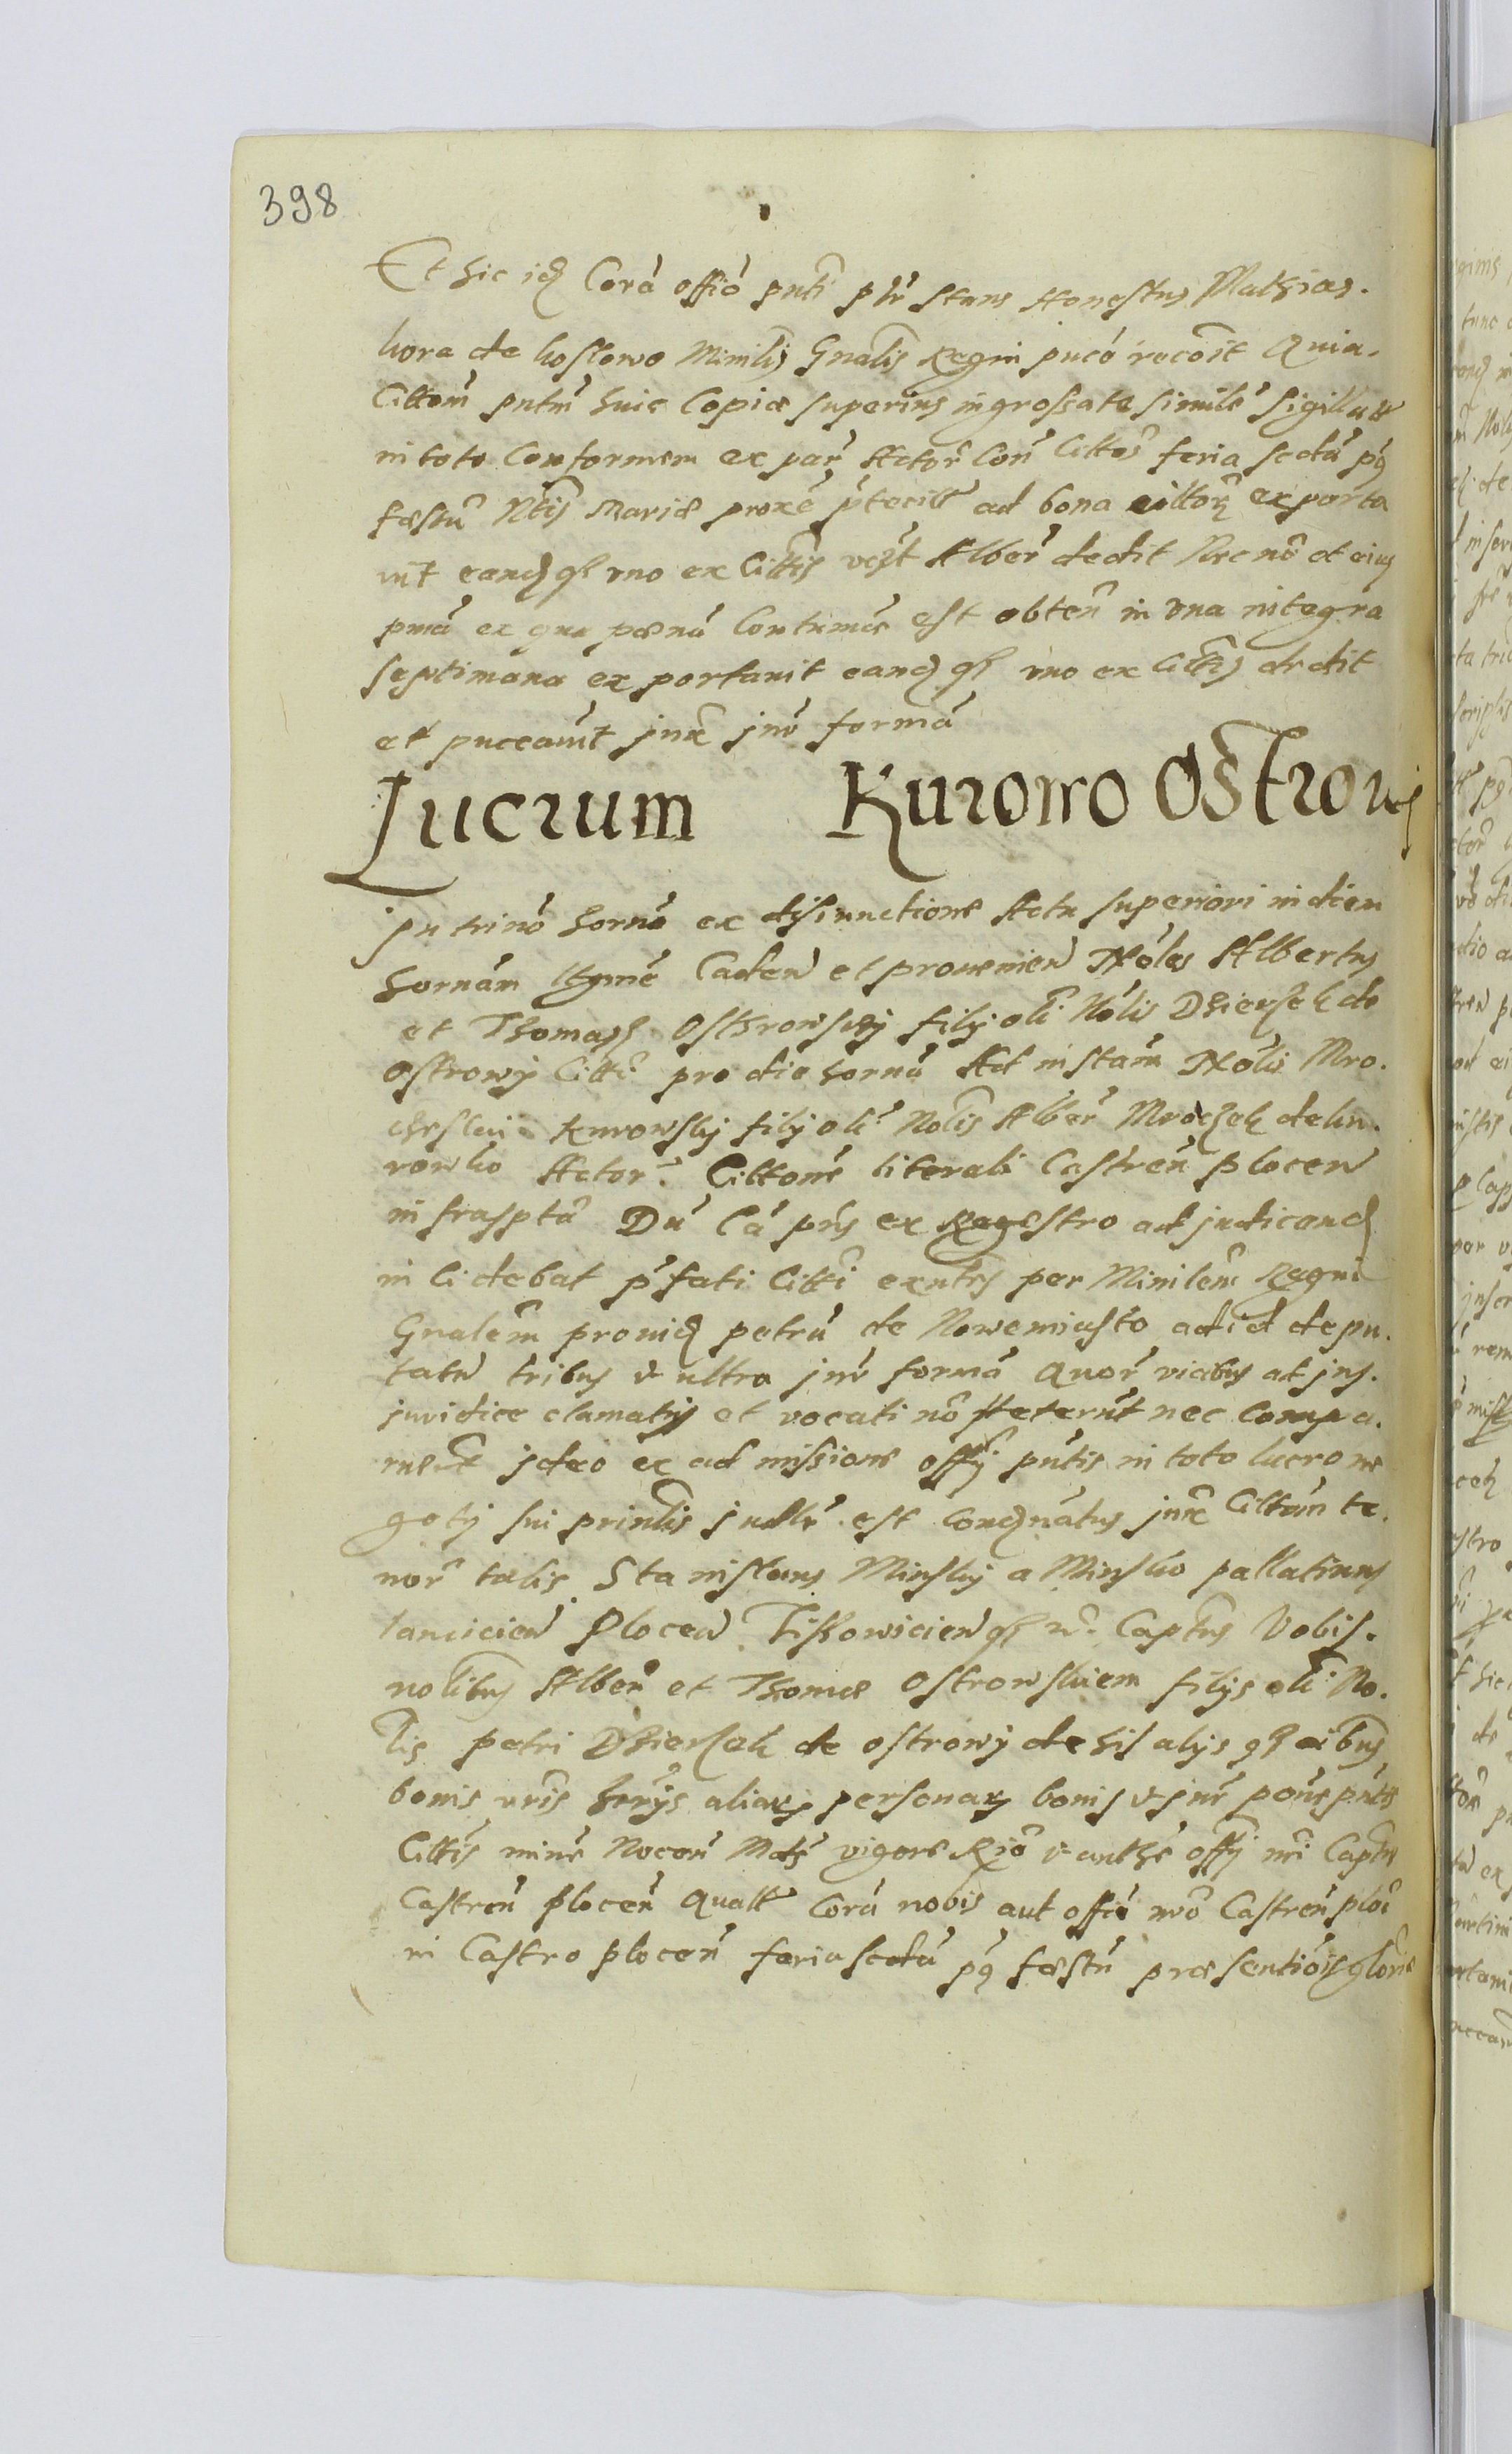 398
Et hic id Corã officõ pnti plr stans Honestus Mathias
kora de koslowo Minilis Gnalis Regni pucõ recõit Quia
Cittom pntm huic Copiæ superius ingrossate simile sigillat
in toto Conformem ex par Actor Con Cittos feria scda pq
fæstũ Ntis Mariæ proxe pterit ad bona cittor exporta
vit eandq vno ex Cittis vczt Alber dedit Nec no et eius
pmã ex qua pænã Contumac est obten in vna integra
septimana exportauit eandq vno ex Cittis dedit
et puceauit juxᵃ jur formã
Lucrum Kurowo Ostrowj
In trino hornõ ex disiunctione Actu superiori in diem
hornam ltgme Caden et prouenien Noles Albertus
et Thomas Osthrowsczy filij oli Nolis Dzierzek de
Ostrowy Citti pro die hornã Ad instam Nolis Mro
cheslai Kurowsky filij oli Nolis Alber Mroczek de ku
rowko Actor Cittone literali Castren Plocen
infrasptã Dũ Cã pns ex Regestro ad judicand
incidebat pfati Citti exntes per Minilem Regni
Gnalem prouid petrũ de Nowemiasto ad id depu
tatu tribus & ultra jur formã quor vicibus ad jus
juridice clamatis et vocati nõ steterũt nec compa
ruerũt jdeo ex ad missione offij pntis in toto lucro ne
gotij sui prinlis judlr est Condnatus juxᵃ Cittom te
nor talis Stanislaus Minsky a Minsko pallatinus
lancicien Plocen Tissowicien q Captns Vobis
nolibus Alber et Thomæ Ostrowskiem filijs oli No
lis petri Dzierzek de ostrowy de his alijs q oibus
bonis vris hrijs aliarq personarq bonis & jur pone pntis
Cittis mine Nocon Mdis vigore Rio & authe offij nri Captn
Castren Plocen quatt Corã nobis aut officõ nrõ Castren ploc
in Castro plocen feria scdã pq fæstũ præsentionis glorie